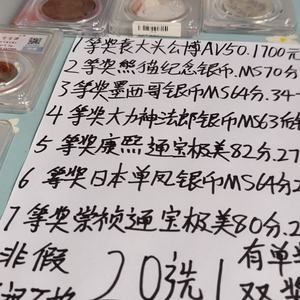 1等奖袁大头公博AV50.1700元
2等奖熊猫纪念银币.MS70分
3等奖墨西哥银币MS64分.34
4等奖大力神法郎银币MS63
5等奖康熙通宝极美82分.27
6等奖日本单凤银币MS64分2
7等奖崇祯通宝极美80分.2
非假
20选1
有单
双奖